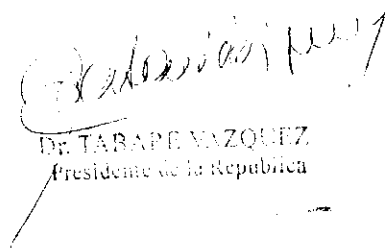 Dr. TABARE VAZQUEZ
Presidente de la Republica